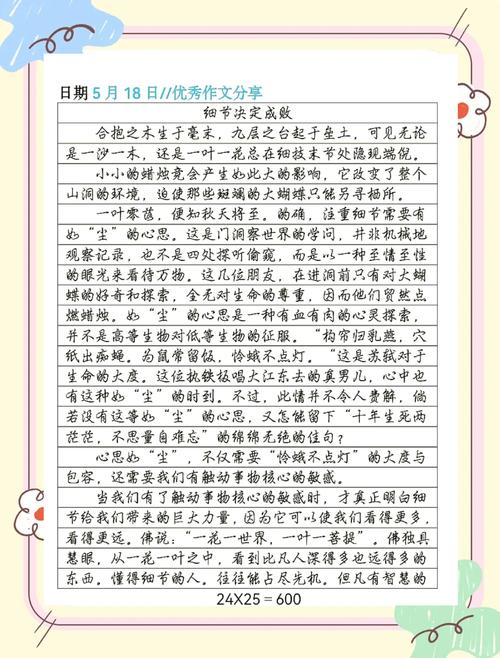 日期5月18日//优秀作文分享
细节决定成败
合抱之木生于毫末，九层之台起于垒土，可见无论
是一沙一木，还是一叶一花总在细枝末节处隐现端倪。
小小的蜡烛竟会产生如此大的影响，它改变了整个
山洞的环境，迫使那些斑斓的大蝴蝶只能另寻栖所。
一叶零落，便知秋天将至。的确，注重细节需要有
如“尘”的心思。这是门洞察世界的学问，并非机械地
观察记录，也不是四处探听偷窥，而是以一种至情至性
的眼光来看待万物。这几位朋友，在进洞前只有对大蝴
蝶的好奇和探索，全无对生命的尊重，因而他们贸然点
燃蜡烛。如“尘”的心思是一种有血有肉的心灵探索，
并不是高等生物对低等生物的征服。“构帘归乳燕，穴
纸出痴蝇。为鼠常留饭，怜蛾不点灯。“这是苏轼对于
生命的大度。这位执铁板唱大江东去的真男儿，心中也
有这种如“尘”的时刻。不过，此情并不令人费解，倘
若没有这等如“尘”的心思，又怎能留下“十年生死两
茫茫，不思量自难忘”的绵绵无绝的佳句？
心思如“尘”，不仅需要“怜蛾不点灯”的大度与
包容，还需要我们有触动事物核心的敏感。
当我们有了触动事物核心的敏感时，才真正明白细
节给我们带来的巨大力量，因为它可以使我们看得更多，
看得更远。佛说：“一花一世界，一叶一菩提”。佛独具
慧眼，从一花一叶之中，看到比凡人深得多也远得多的
东西。懂得细节的人。往往能占尽先机。但凡有智慧的
24X25=600